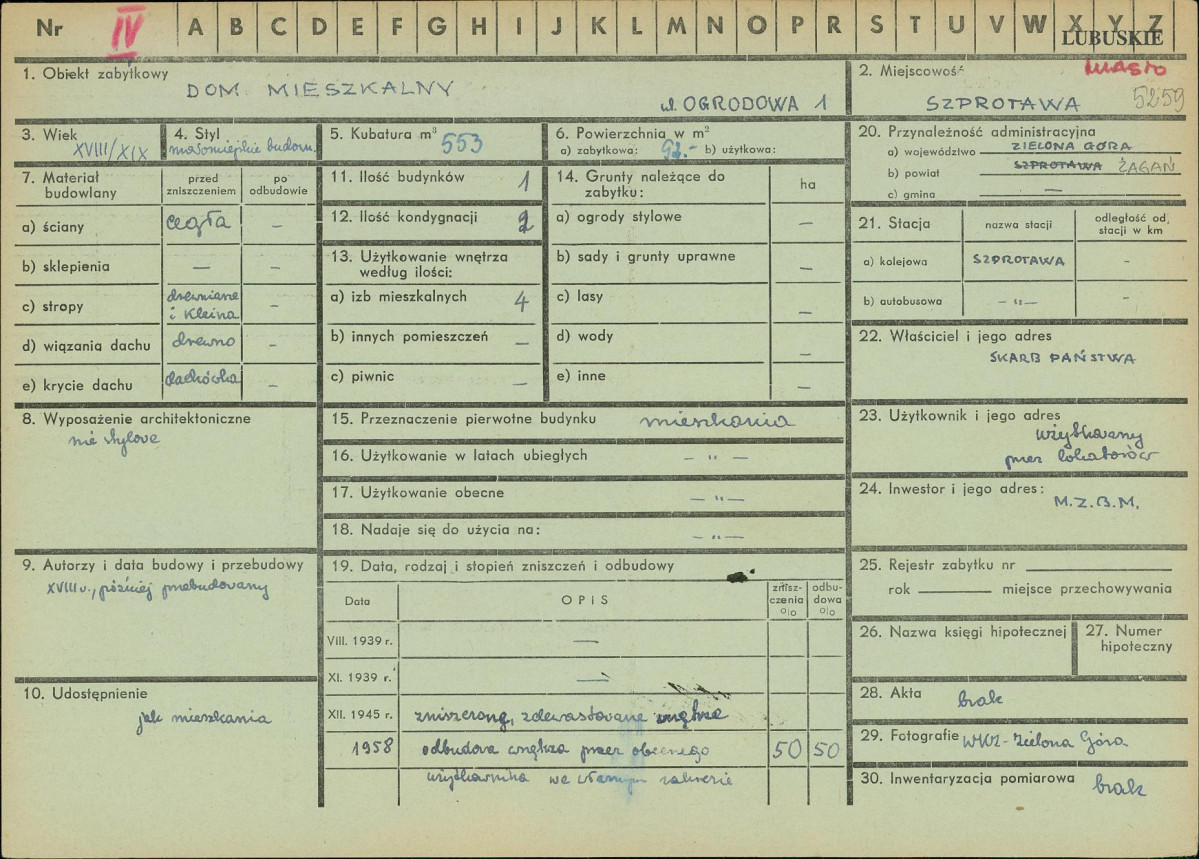 Nr IV A B C D E F G H I J K L M N O P R S T U V W X Y Z
LUBUSKIE
1. Obiekt zabytkowy
DOM MIESZKALNY
ul. OGRODOWA 1
2. Miejscowość
miasto
SZPROTAWA
5259
3. Wiek
XVIII/XIX
4. Styl
małomiejskie budown.
5. Kubatura m³
553
6. Powierzchnia w m²
a) zabytkowa: 92.- b) użytkowa:
7. Materiał budowlany
przed zniszczeniem
po odbudowie
a) ściany cegła –
b) sklepienia — –
c) stropy drewniane i Kleina –
d) wiązania dachu drewno –
e) krycie dachu dachówka –
8. Wyposażenie architektoniczne
nie stylowe
9. Autorzy i data budowy i przebudowy
XVIII w., później przebudowany
10. Udostępnienie
jak mieszkania
11. Ilość budynków 1
12. Ilość kondygnacji 2
13. Użytkowanie wnętrza
według ilości:
a) izb mieszkalnych 4
b) innych pomieszczeń –
c) piwnic –
14. Grunty należące do
zabytku:
ha
a) ogrody stylowe –
b) sady i grunty uprawne –
c) lasy –
d) wody –
e) inne –
15. Przeznaczenie pierwotne budynku mieszkania
16. Użytkowanie w latach ubiegłych – „ —
17. Użytkowanie obecne – „ —
18. Nadaje się do użycia na: – „ —
19. Data, rodzaj i stopień zniszczeń i odbudowy
Data
OPIS
znisz-
czenia
o|o
odbu-
dowa
o|o
VIII. 1939 r. —
XI. 1939 r. —
XII. 1945 r. zniszczone, zdewastowane wnętrze
1958 odbudowa wnętrza przez obecnego 50 50
użytkownika we własnym zakresie
20. Przynależność administracyjna
a) województwo ZIELONA GÓRA
b) powiat SZPROTAWA ŻAGAŃ
c) gmina —
21. Stacja
nazwa stacji
odległość od
stacji w km
a) kolejowa SZPROTAWA –
b) autobusowa – „ – –
22. Właściciel i jego adres
SKARB PAŃSTWA
23. Użytkownik i jego adres
użytkowany
przez lokatorów
24. Inwestor i jego adres:
M.Z.B.M.
25. Rejestr zabytku nr
rok miejsce przechowywania
26. Nazwa księgi hipotecznej
27. Numer
hipoteczny
28. Akta
brak
29. Fotografie WKZ - Zielona Góra
30. Inwentaryzacja pomiarowa
brak